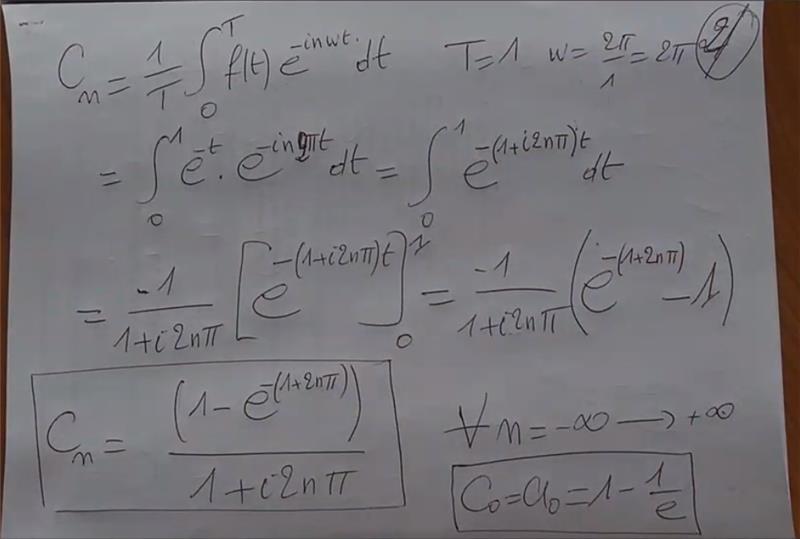 C_n = 1/T ∫_0^T f(t) e^{-inwt} dt   T=1   w = 2π/1 = 2π   2
= ∫_0^1 e^{-t} . e^{-in2πt} dt = ∫_0^1 e^{-(1+i2nπ)t} dt
= -1/(1+i2nπ) [e^{-(1+i2nπ)t}]_0^1 = -1/(1+i2nπ) (e^{-(1+2nπ)} - 1)
C_n = (1 - e^{-(1+2nπ)})/(1+i2nπ)   ∀ n = -∞ → +∞
C_0 = a_0 = 1 - 1/e